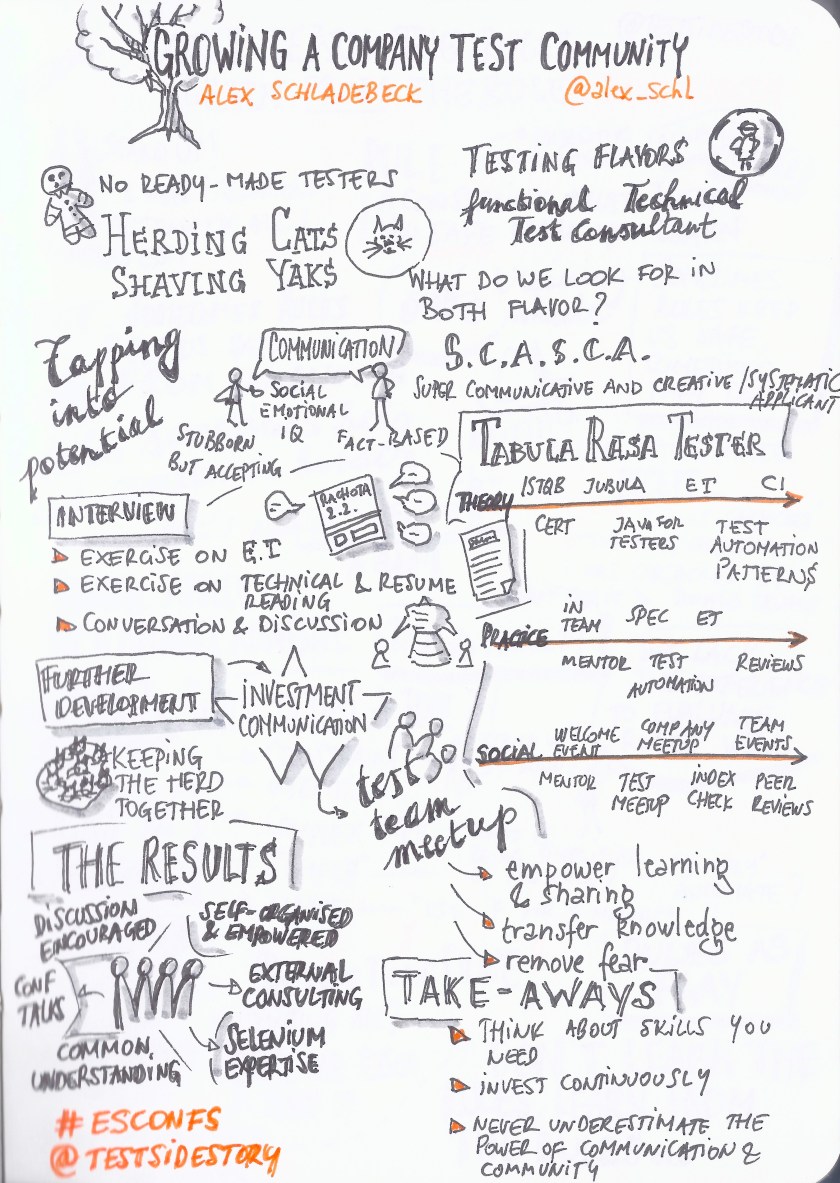 GROWING A COMPANY TEST COMMUNITY
ALEX SCHLADEBECK
@alex_schl
NO READY-MADE TESTERS
HERDING CATS
SHAVING YAKS
TESTING FLAVORS
functional Technical
Test Consultant
WHAT DO WE LOOK FOR IN
BOTH FLAVOR?
S.C.A.S.C.A.
SUPER COMMUNICATIVE AND CREATIVE / SYSTEMATIC
APPLICANT
Tapping
into
potential
COMMUNICATION
SOCIAL
EMOTIONAL
IQ
STUBBORN
BUT ACCEPTING
FACT-BASED
INTERVIEW
RACHOTA
2.2.
EXERCISE ON E.T
EXERCISE ON TECHNICAL & RESUME
READING
CONVERSATION & DISCUSSION
TABULA RASA TESTER
THEORY
ISTQB JUBULA ET CI
CERT
JAVA FOR
TESTERS
TEST
AUTOMATION
PATTERNS
PRACTICE
IN
TEAM
SPEC
ET
MENTOR
TEST
AUTOMATION
REVIEWS
SOCIAL
WELCOME
EVENT
COMPANY
MEETUP
TEAM
EVENTS
MENTOR
TEST
MEETUP
INDEX
CHECK
PEER
REVIEWS
FURTHER
DEVELOPMENT
INVESTMENT
COMMUNICATION
KEEPING
THE HERD
TOGETHER
test
team
meetup
empower learning
& sharing
transfer knowledge
remove fear
THE RESULTS
DISCUSSION
ENCOURAGED
SELF-ORGANISED
& EMPOWERED
CONF
TALKS
EXTERNAL
CONSULTING
COMMON
UNDERSTANDING
SELENIUM
EXPERTISE
TAKE-AWAYS
THINK ABOUT SKILLS YOU
NEED
INVEST CONTINUOUSLY
NEVER UNDERESTIMATE THE
POWER OF COMMUNICATION &
COMMUNITY
# ESCONFS
@TESTSIDESTORY